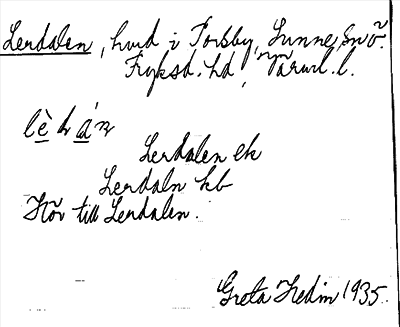 Lerdalen, hmd i Torsby, Sunne sn ö.
Fryksd. hd, Värml. l.
Lerdalen ek
Lerdaln kb
Hör till Lerdalen.
Greta Hedin 1935.